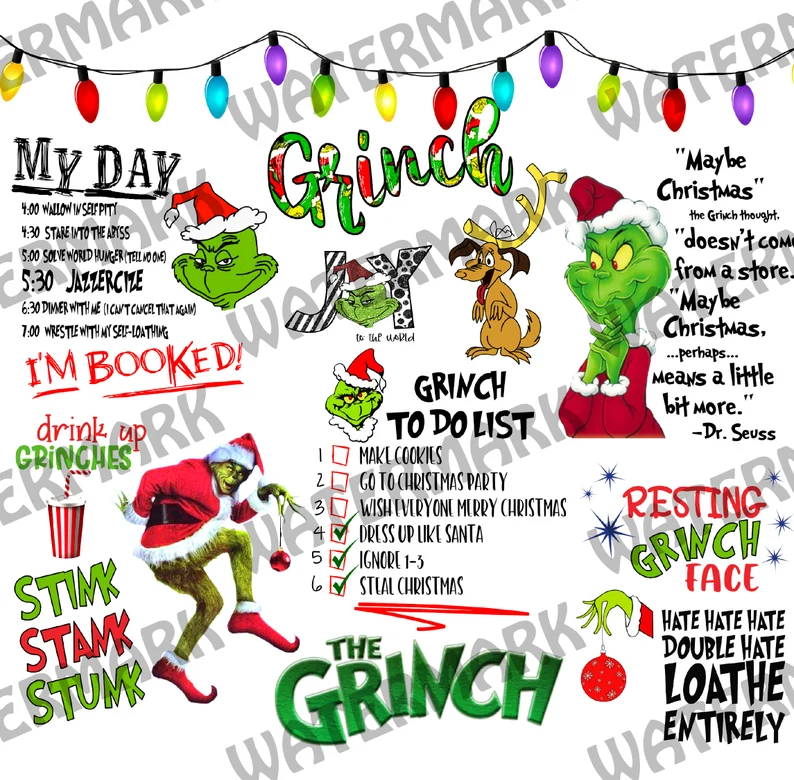 Grinch
MY DAY
4:00 WALLOW IN SELF PITY
4:30 STARE INTO THE ABYSS
5:00 SOLVE WORLD HUNGER (TELL NO ONE)
5:30 JAZZERCIZE
6:30 DINNER WITH ME (I CAN'T CANCEL THAT AGAIN)
7:00 WRESTLE WITH MY SELF-LOATHING
I'M BOOKED!
JOY
to the world
"Maybe
Christmas"
the Grinch thought,
"doesn't come
from a store.
"Maybe
Christmas,
...perhaps...
means a little
bit more."
-Dr. Seuss
GRINCH
TO DO LIST
1 MAKE COOKIES
2 GO TO CHRISTMAS PARTY
3 WISH EVERYONE MERRY CHRISTMAS
4 DRESS UP LIKE SANTA
5 IGNORE 1-3
6 STEAL CHRISTMAS
drink up
GRINCHES
STINK
STANK
STUNK
THE
GRINCH
RESTING
GRINCH
FACE
HATE HATE HATE
DOUBLE HATE
LOATHE
ENTIRELY
WATERMARK
WATERMARK
WATERMARK
WATERMARK
WATERMARK
WATERMARK
WATERMARK
WATERMARK